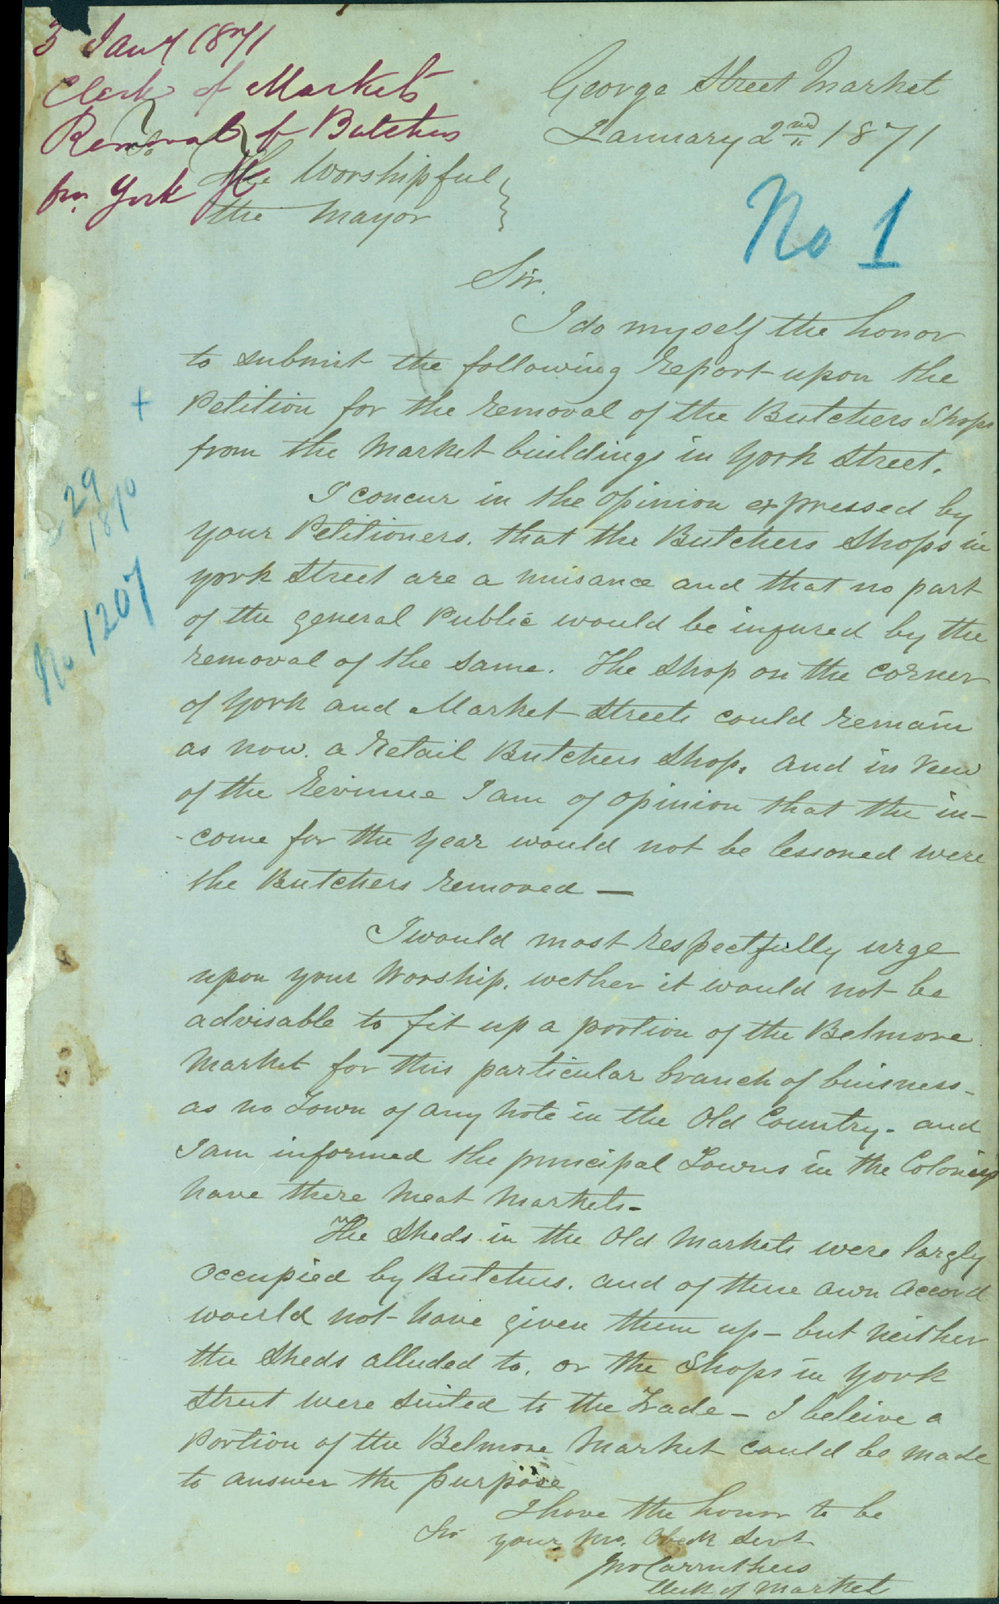 3 Jany 1871
Clerk of Markets
Removal of Butchers
fm York St
George Street Market
January 2nd 1871
The Worshipful
the Mayor
No 1
Sir.
I do myself the honor
to submit the following Report upon the
Petition for the removal of the Butchers Shops
from the Market buildings in York Street.
I concur in the opinion expressed by
your Petitioners. that the Butchers Shops in
York Street are a nuisance and that no part
of the general Public would be injured by the
removal of the same. The Shop on the corner
of York and Market Streets could remain
as now. a Retail Butchers Shop. and in view
of the Revinue I am of opinion that the in-
-come for the year would not be lessoned were
the Butchers removed —
I would most respectfully urge
upon your Worship. wether it would not be
advisable to fit up a portion of the Belmore
Market for this particular branch of buisness-
as no Town of any note in the Old Country. and
I am informed the principal Towns in the Colonies
have there Meat Markets-
The Sheds in the Old Markets were largly
occupied by Butchers. and of there own accord
would not have given them up - but neither
the Sheds alluded to. or the Shops in York
Street were suited to the Trade - I beleive a
Portion of the Belmore Market could be made
to answer the purpose
I have the honor to be
Sir your mo. Obedt Servt
Jno Carruthers
Clerk of Market
+
29
1870
No 1207